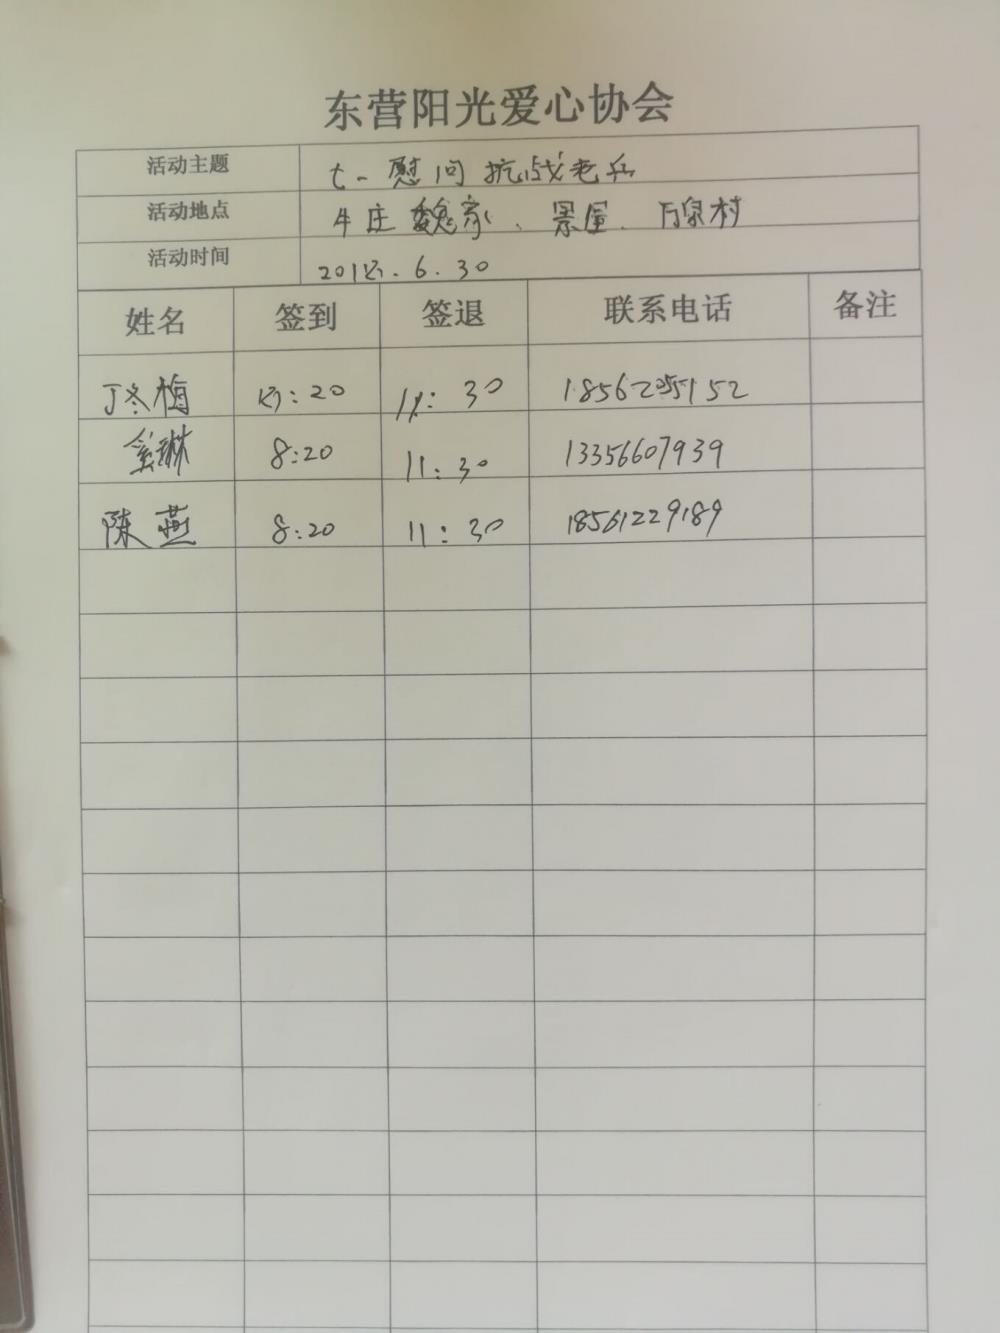 东营阳光爱心协会
活动主题 七一慰问抗战老兵
活动地点 牛庄魏家、景屋、万泉村
活动时间 2018.6.30
姓名 签到 签退 联系电话 备注
丁冬梅 8:20 11:30 1856205152
8:20 11:30 13356607939
陈燕 8:20 11:30 18561229189